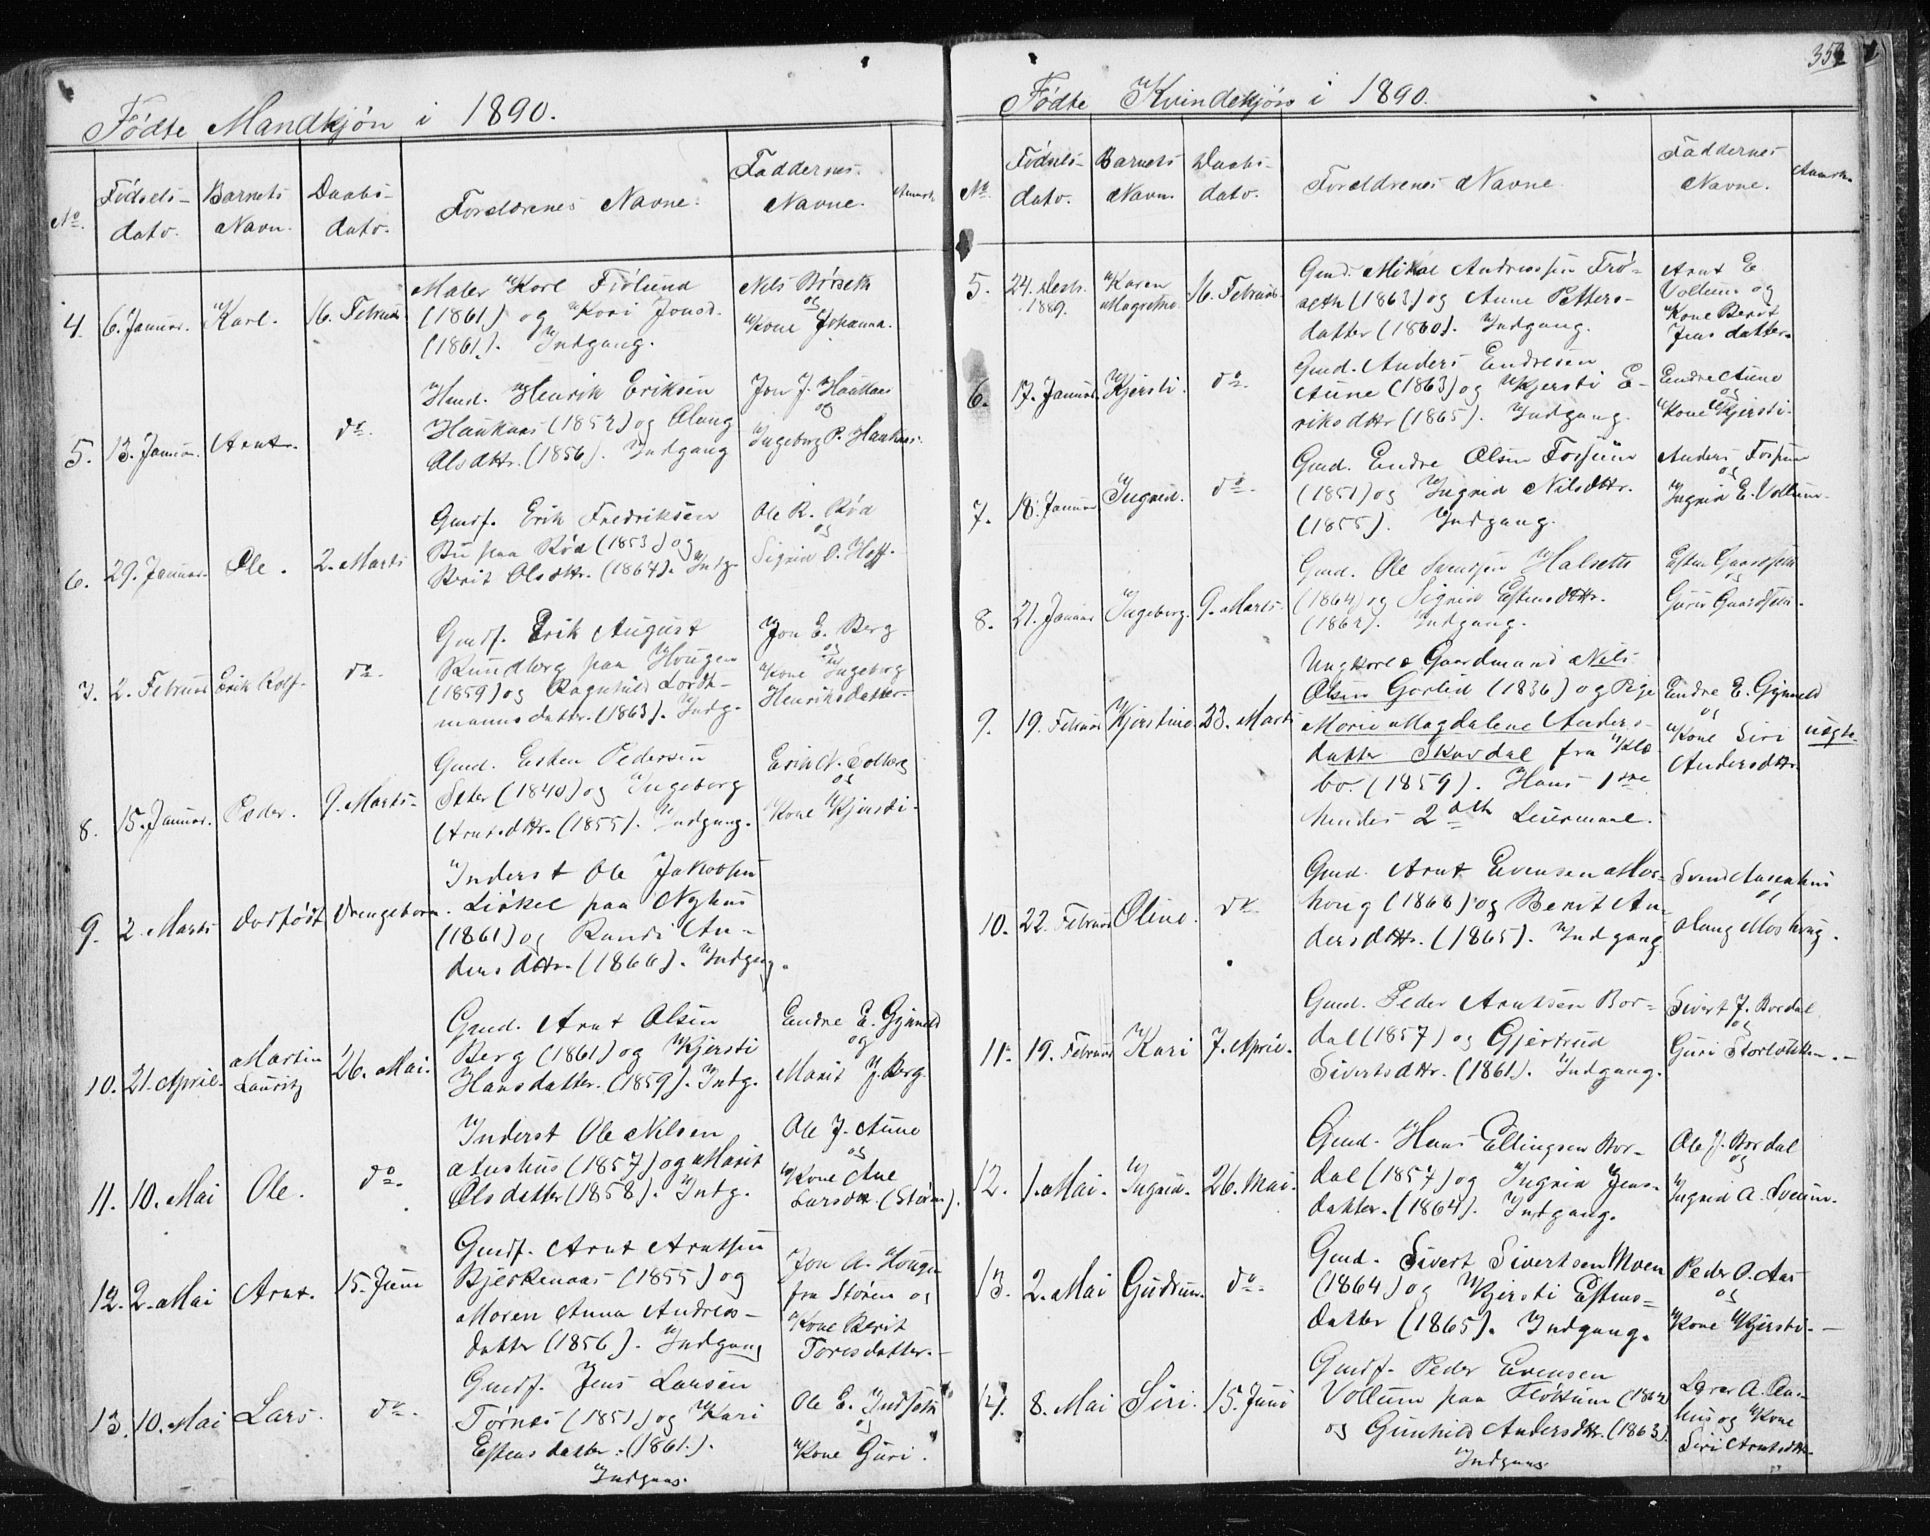 353
Fødte Mandkjøn i 1890.
No.
Fødsels-
dato.
Barnets
Navn.
Daabs-
dato.
Forældrenes Navne.
Faddernes
Navne.
Anmærk.
4.
6. Januar.
Karl.
16. Februar
Maler Karl Fiølund
(1861) og Kari Jonsd.
(1861). Indgang.
Nils Børseth
og
Kone Johanna.
5.
13. Januar.
Arnt.
do.
Husm. Henrik Eriksen
Haukaas (1852) og Olaug
Olsdttr. (1856). Indgang
Jon J. Haukaas
og
Ingeborg P. Haukaas.
6.
29. Januar.
Ole.
2. Marts
Gmdf. Erik Fredriksen
Bu paa Rød (1853) og
Berit Olsdttr. (1864). Indg.
Ole R. Rød
og
Sigrid O. Hoff.
7.
2. Februar
Erik Rolf.
do.
Gmdf. Erik August
Rundberg paa Hougen
(1859) og Ragnhild Lordt-
mannsdattr. (1863). Indg.
Jon E. Berg
og
Kone Ingeborg
Henriksdatter.
8.
15. Januar.
Peder.
9. Marts.
Gmd. Esten Pedersen
Sæter (1840) og Ingeborg
Arntsdttr. (1855). Indgang.
Erik N. Solberg
og
Kone Kjersti.
9.
2. Marts
Dødfødt
Drengebarn.
Inderst Ole Jakobsen
Liøkel paa Nyhus
(1861) og Randi An-
dersdttr. (1866). Indgang.
10.
21. April.
Martin
Lauritz
26. Mai.
Gmd. Arnt Olsen
Berg (1861) og Kjersti
Hansdatter. (1859). Indg.
Endre E. Gynneld
og
Marit J. Berg.
11.
10. Mai
Ole.
do.
Inderst Ole Nilsen
Aushus (1857) og Marit
Olsdatter (1858). Indg.
Ole J. Aune
og
Kone Ane
Larsdtr. (Støren).
12.
2. Mai
Arnt.
15. Juni
Gmdf. Arnt Arntsen
Bjerkenaas (1855) og
Maren Anna Andreas-
datter (1856). Indgang
Jon A. Hougen
fra Støren og
Kone Berit
Toresdatter.
13.
10. Mai
Lars.
do.
Gmdf. Jens Larsen
Tørnes (1851) og Kari
Estensdatter. (1861).
Indgang.
Ole E. Indseth
og
Kone Guri.
Fødte Kvindekjøn i 1890.
No.
Fødsels-
dato.
Barnets
Navn.
Daabs-
dato.
Forældrenes Navne.
Faddernes
Navne.
Anmærk.
5.
24. Decbr.
1889.
Karen
Magrethe.
16. Februar
Gmd. Mikal Andreassen Frø-
seth (1863) og Anne Petters-
datter (1860). Indgang.
Arnt E.
Vollum og
Kone Berit
Jensdatter.
6.
17. Januar.
Kjersti.
do.
Gmd. Anders Endresen
Aune (1863) og Kjersti E-
riksdttr (1865). Indgang.
Endre Aune
og
Kone Kjersti.
7.
18. Januar
Ingrid.
do.
Gmd. Endre Olsen Fossum
(1851) og Ingrid Nilsdttr.
(1855). Indgang.
Anders Fossum
og
Ingrid E. Vollum.
8.
21. Januar
Ingeborg.
9. Marts.
Gmd. Ole Svendsen Halseth
(1864) og Sigrid Estensdttr.
(1862). Indgang.
Esten Gaardsem
og
Guri Gaardsem.
9.
19. Februar
Kjerstine.
23. Marts
Ungkarl & Gaardmand Nils
Olsen Gorlid (1836) og Pige
Marie Magdalene Anders-
datter Skavdal fra Klæ-
bo. (1859). Hans 1ste
hendes 2det Leiermaal.
Endre E. Gynneld
og
Kone Siri
Andersdttr.
uægte.
10.
22. Februar
Oline.
do.
Gmd. Arnt Evensen Mos-
houg (1868) og Berit An-
dersdttr. (1865). Indgang
Svend Aunehus
og
Olaug Moshoug.
11.
19. Februar
Kari
7. April.
Gmd. Peder Arntsen Bor-
dal (1857) og Gjertrud
Sivertsdttr. (1861). Indgang.
Sivert J. Bordal
og
Guri Storvolden.
12.
1. Mai.
Ingrid.
26. Mai.
Gmd. Hans Ellingsen Bor-
dal (1857) og Ingrid Jens-
datter. (1864). Indgang.
Ole J. Bordal
og
Ingrid A. Sveum.
13.
2. Mai
Gudrun.
do.
Gmd. Sivert Sivertsen Moen
(1864) og Kjersti Estens-
datter (1865). Indgang.
Peder O. Aas
og
Kone Kjersti.
14.
8. Mai
Siri.
15. Juni
Gmdf. Peder Evensen
Vollum paa Høktum (1862)
og Gunhild Andersdttr. (1863).
Indgang.
Lærer A. Au-
hus og Kone
Siri Arntsdttr.